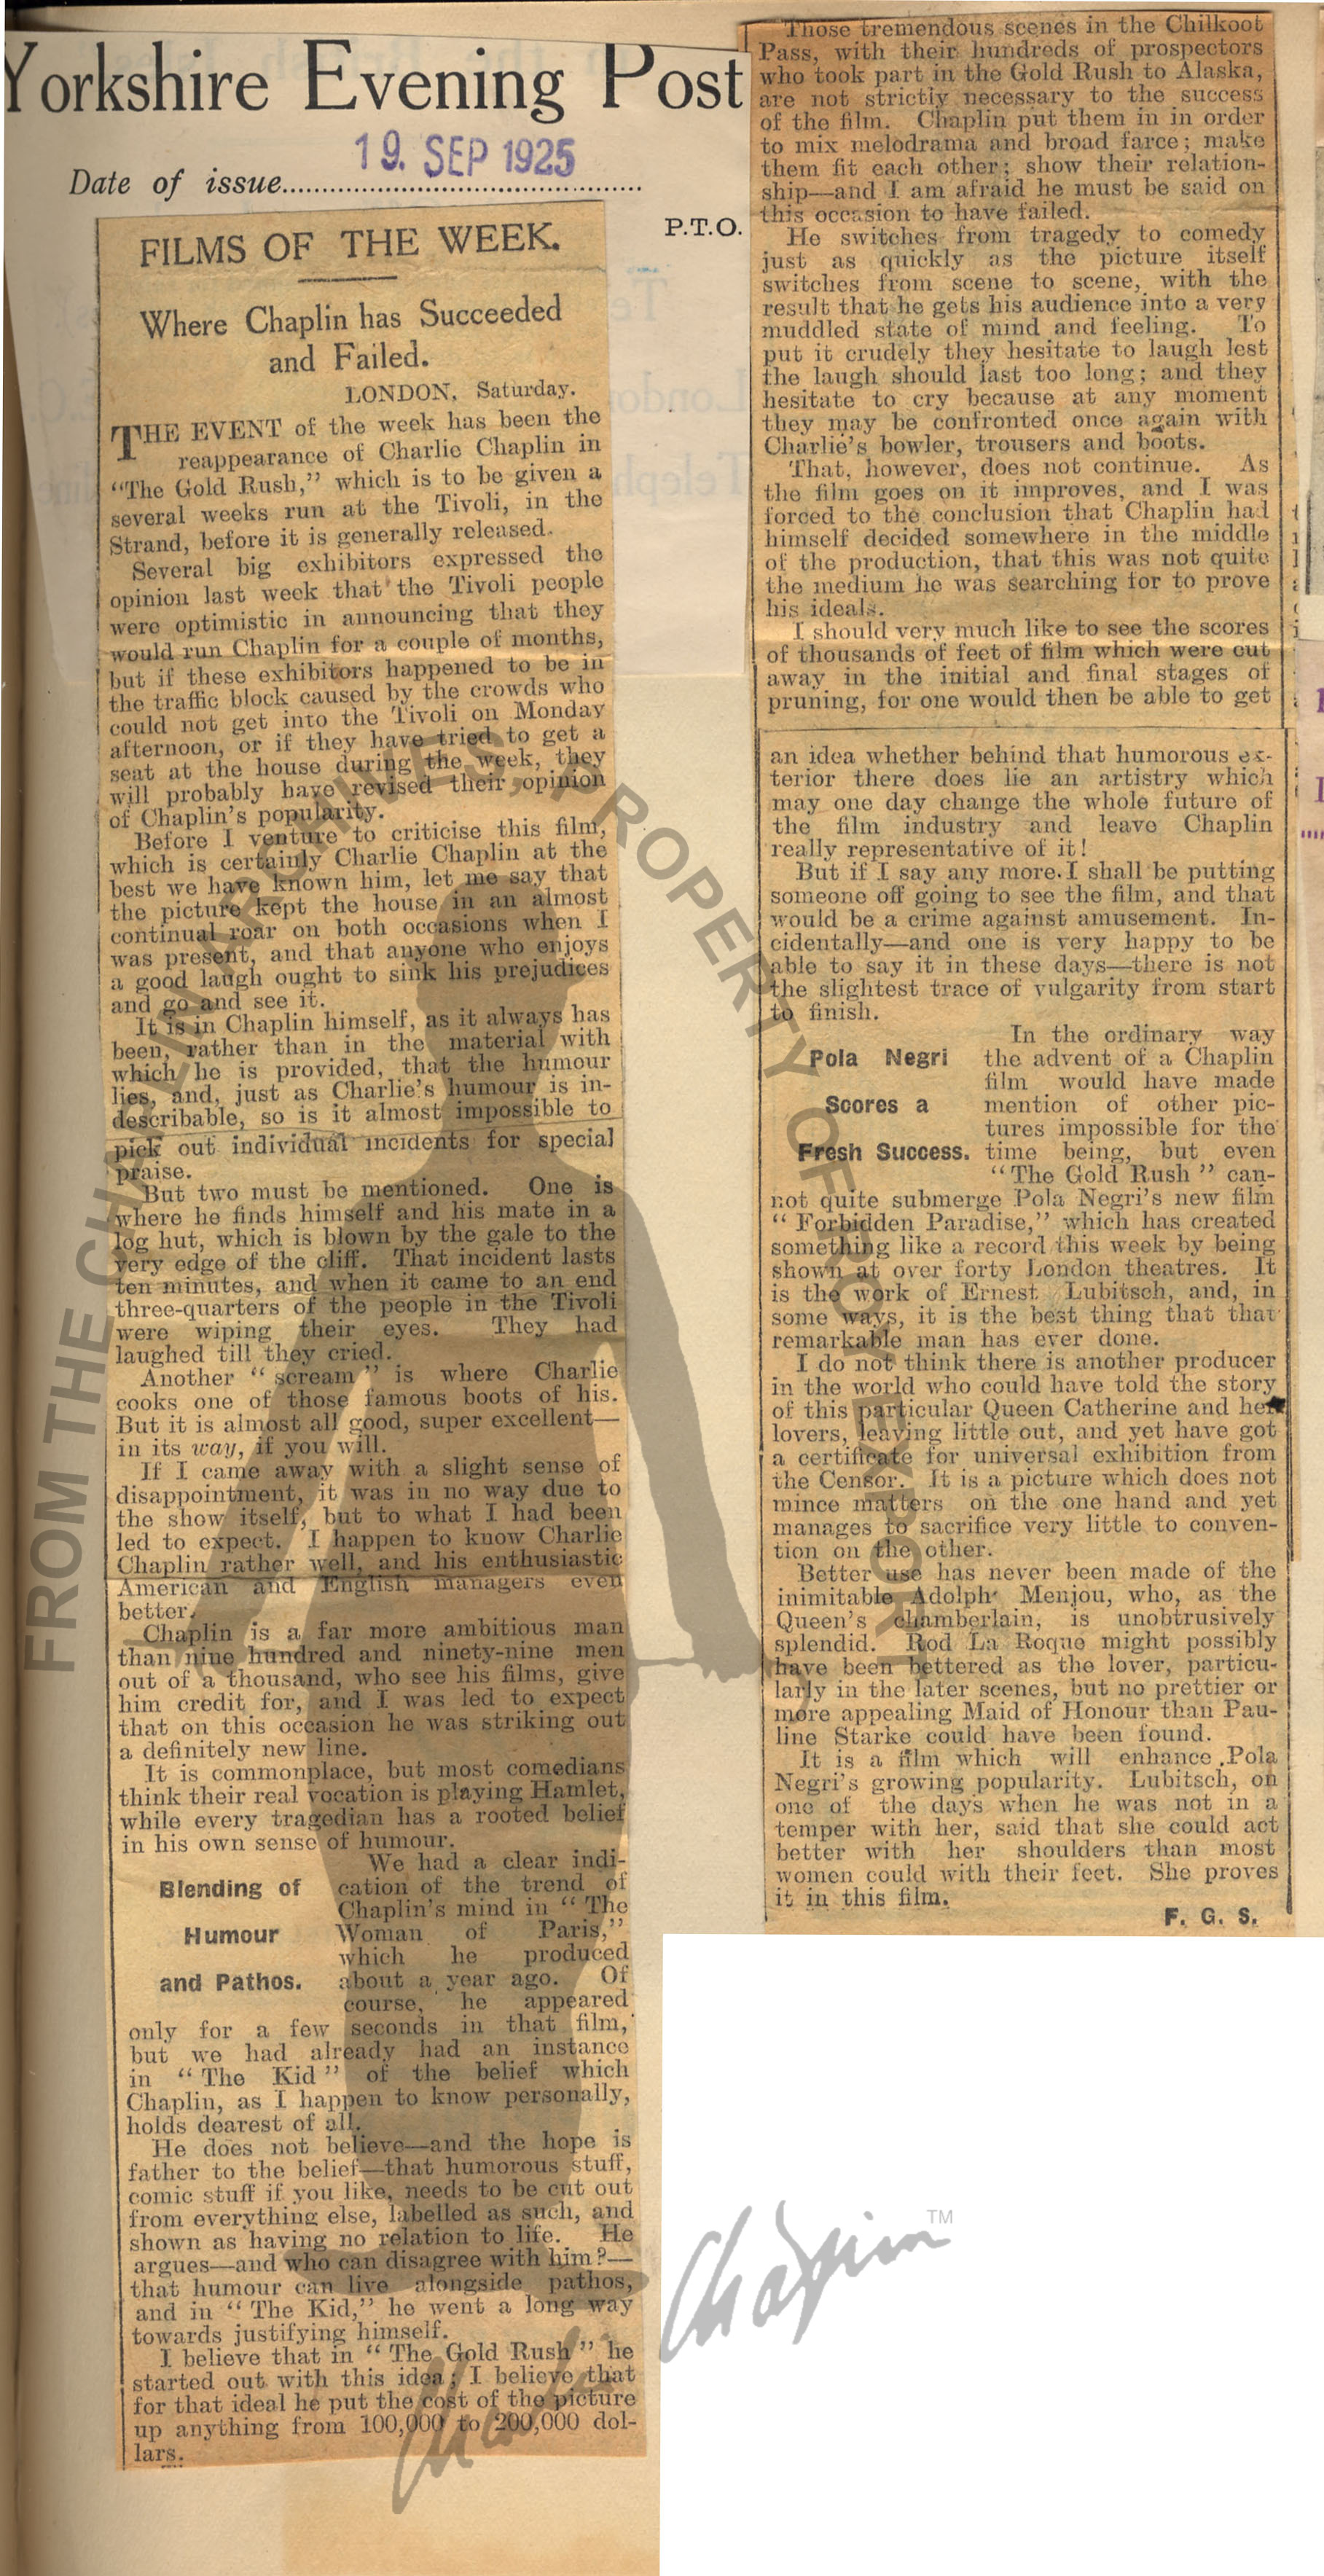 Yorkshire Evening Post
19. SEP 1925
Date of issue
P.T.O.
FILMS OF THE WEEK.
Where Chaplin has Succeeded
and Failed.
LONDON, Saturday.
THE EVENT of the week has been the
reappearance of Charlie Chaplin in
"The Gold Rush," which is to be given a
several weeks run at the Tivoli, in the
Strand, before it is generally released.
Several big exhibitors expressed the
opinion last week that the Tivoli people
were optimistic in announcing that they
would run Chaplin for a couple of months,
but if these exhibitors happened to be in
the traffic block caused by the crowds who
could not get into the Tivoli on Monday
afternoon, or if they have tried to get a
seat at the house during the week, they
will probably have revised their opinion
of Chaplin's popularity.
Before I venture to criticise this film,
which is certainly Charlie Chaplin at the
best we have known him, let me say that
the picture kept the house in an almost
continual roar on both occasions when I
was present, and that anyone who enjoys
a good laugh ought to sink his prejudices
and go and see it.
It is in Chaplin himself, as it always has
been, rather than in the material with
which he is provided, that the humour
lies, and, just as Charlie's humour is in-
describable, so is it almost impossible to
pick out individual incidents for special
praise.
But two must be mentioned. One is
where he finds himself and his mate in a
log hut, which is blown by the gale to the
very edge of the cliff. That incident lasts
ten minutes, and when it came to an end
three-quarters of the people in the Tivoli
were wiping their eyes. They had
laughed till they cried.
Another "scream" is where Charlie
cooks one of those famous boots of his.
But it is almost all good, super excellent—
in its way, if you will.
If I came away with a slight sense of
disappointment, it was in no way due to
the show itself, but to what I had been
led to expect. I happen to know Charlie
Chaplin rather well, and his enthusiastic
American and English managers even
better.
Chaplin is a far more ambitious man
than nine hundred and ninety-nine men
out of a thousand, who see his films, give
him credit for, and I was led to expect
that on this occasion he was striking out
a definitely new line.
It is commonplace, but most comedians
think their real vocation is playing Hamlet,
while every tragedian has a rooted belief
in his own sense of humour.
Blending of
Humour
and Pathos.
We had a clear indi-
cation of the trend of
Chaplin's mind in "The
Woman of Paris,"
which he produced
about a year ago. Of
course, he appeared
only for a few seconds in that film,
but we had already had an instance
in "The Kid" of the belief which
Chaplin, as I happen to know personally,
holds dearest of all.
He does not believe—and the hope is
father to the belief—that humorous stuff,
comic stuff if you like, needs to be cut out
from everything else, labelled as such, and
shown as having no relation to life. He
argues—and who can disagree with him?—
that humour can live alongside pathos,
and in "The Kid," he went a long way
towards justifying himself.
I believe that in "The Gold Rush" he
started out with this idea; I believe that
for that ideal he put the cost of the picture
up anything from 100,000 to 200,000 dol-
lars.
Those tremendous scenes in the Chilkoot
Pass, with their hundreds of prospectors
who took part in the Gold Rush to Alaska,
are not strictly necessary to the success
of the film. Chaplin put them in in order
to mix melodrama and broad farce; make
them fit each other; show their relation-
ship—and I am afraid he must be said on
this occasion to have failed.
He switches from tragedy to comedy
just as quickly as the picture itself
switches from scene to scene, with the
result that he gets his audience into a very
muddled state of mind and feeling. To
put it crudely they hesitate to laugh lest
the laugh should last too long; and they
hesitate to cry because at any moment
they may be confronted once again with
Charlie's bowler, trousers and boots.
That, however, does not continue. As
the film goes on it improves, and I was
forced to the conclusion that Chaplin had
himself decided somewhere in the middle
of the production, that this was not quite
the medium he was searching for to prove
his ideals.
I should very much like to see the scores
of thousands of feet of film which were cut
away in the initial and final stages of
pruning, for one would then be able to get
an idea whether behind that humorous ex-
terior there does lie an artistry which
may one day change the whole future of
the film industry and leave Chaplin
really representative of it!
But if I say any more I shall be putting
someone off going to see the film, and that
would be a crime against amusement. In-
cidentally—and one is very happy to be
able to say it in these days—there is not
the slightest trace of vulgarity from start
to finish.
Pola Negri
Scores a
Fresh Success.
In the ordinary way
the advent of a Chaplin
film would have made
mention of other pic-
tures impossible for the
time being, but even
"The Gold Rush" can-
not quite submerge Pola Negri's new film
"Forbidden Paradise," which has created
something like a record this week by being
shown at over forty London theatres. It
is the work of Ernest Lubitsch, and, in
some ways, it is the best thing that that
remarkable man has ever done.
I do not think there is another producer
in the world who could have told the story
of this particular Queen Catherine and her
lovers, leaving little out, and yet have got
a certificate for universal exhibition from
the Censor. It is a picture which does not
mince matters on the one hand and yet
manages to sacrifice very little to conven-
tion on the other.
Better use has never been made of the
inimitable Adolph Menjou, who, as the
Queen's chamberlain, is unobtrusively
splendid. Rod La Roque might possibly
have been bettered as the lover, particu-
larly in the later scenes, but no prettier or
more appealing Maid of Honour than Pau-
line Starke could have been found.
It is a film which will enhance Pola
Negri's growing popularity. Lubitsch, on
one of the days when he was not in a
temper with her, said that she could act
better with her shoulders than most
women could with their feet. She proves
it in this film.
F. G. S.
FROM THE CHAPLIN ARCHIVES, PROPERTY OF ROY EXPORT
Charlie Chaplin TM